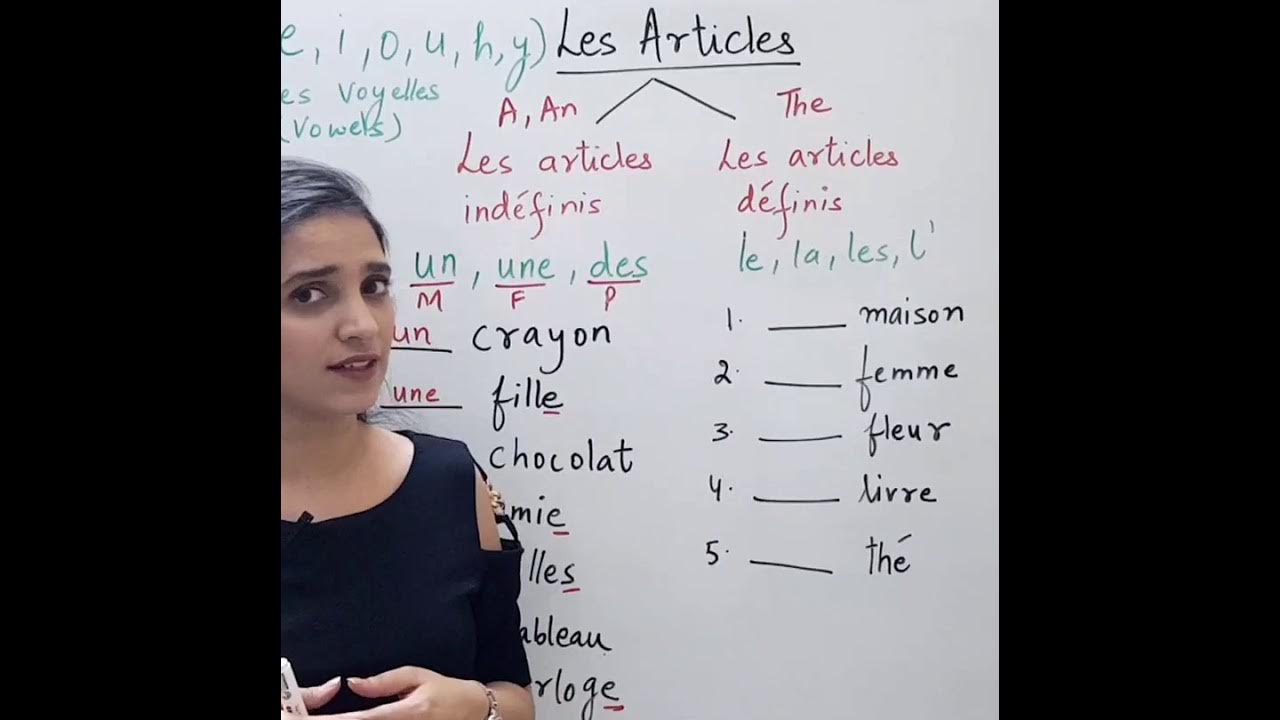 e, i, o, u, h, y) Les Articles
es Voyelles
(Vowels)
A, An
The
Les articles
indéfinis
Les articles
définis
un, une, des
M F P
le, la, les, l'
un crayon
une fille
chocolat
mie
lles
ableau
rloge
1. ____ maison
2. ____ femme
3. ____ fleur
4. ____ livre
5. ____ thé